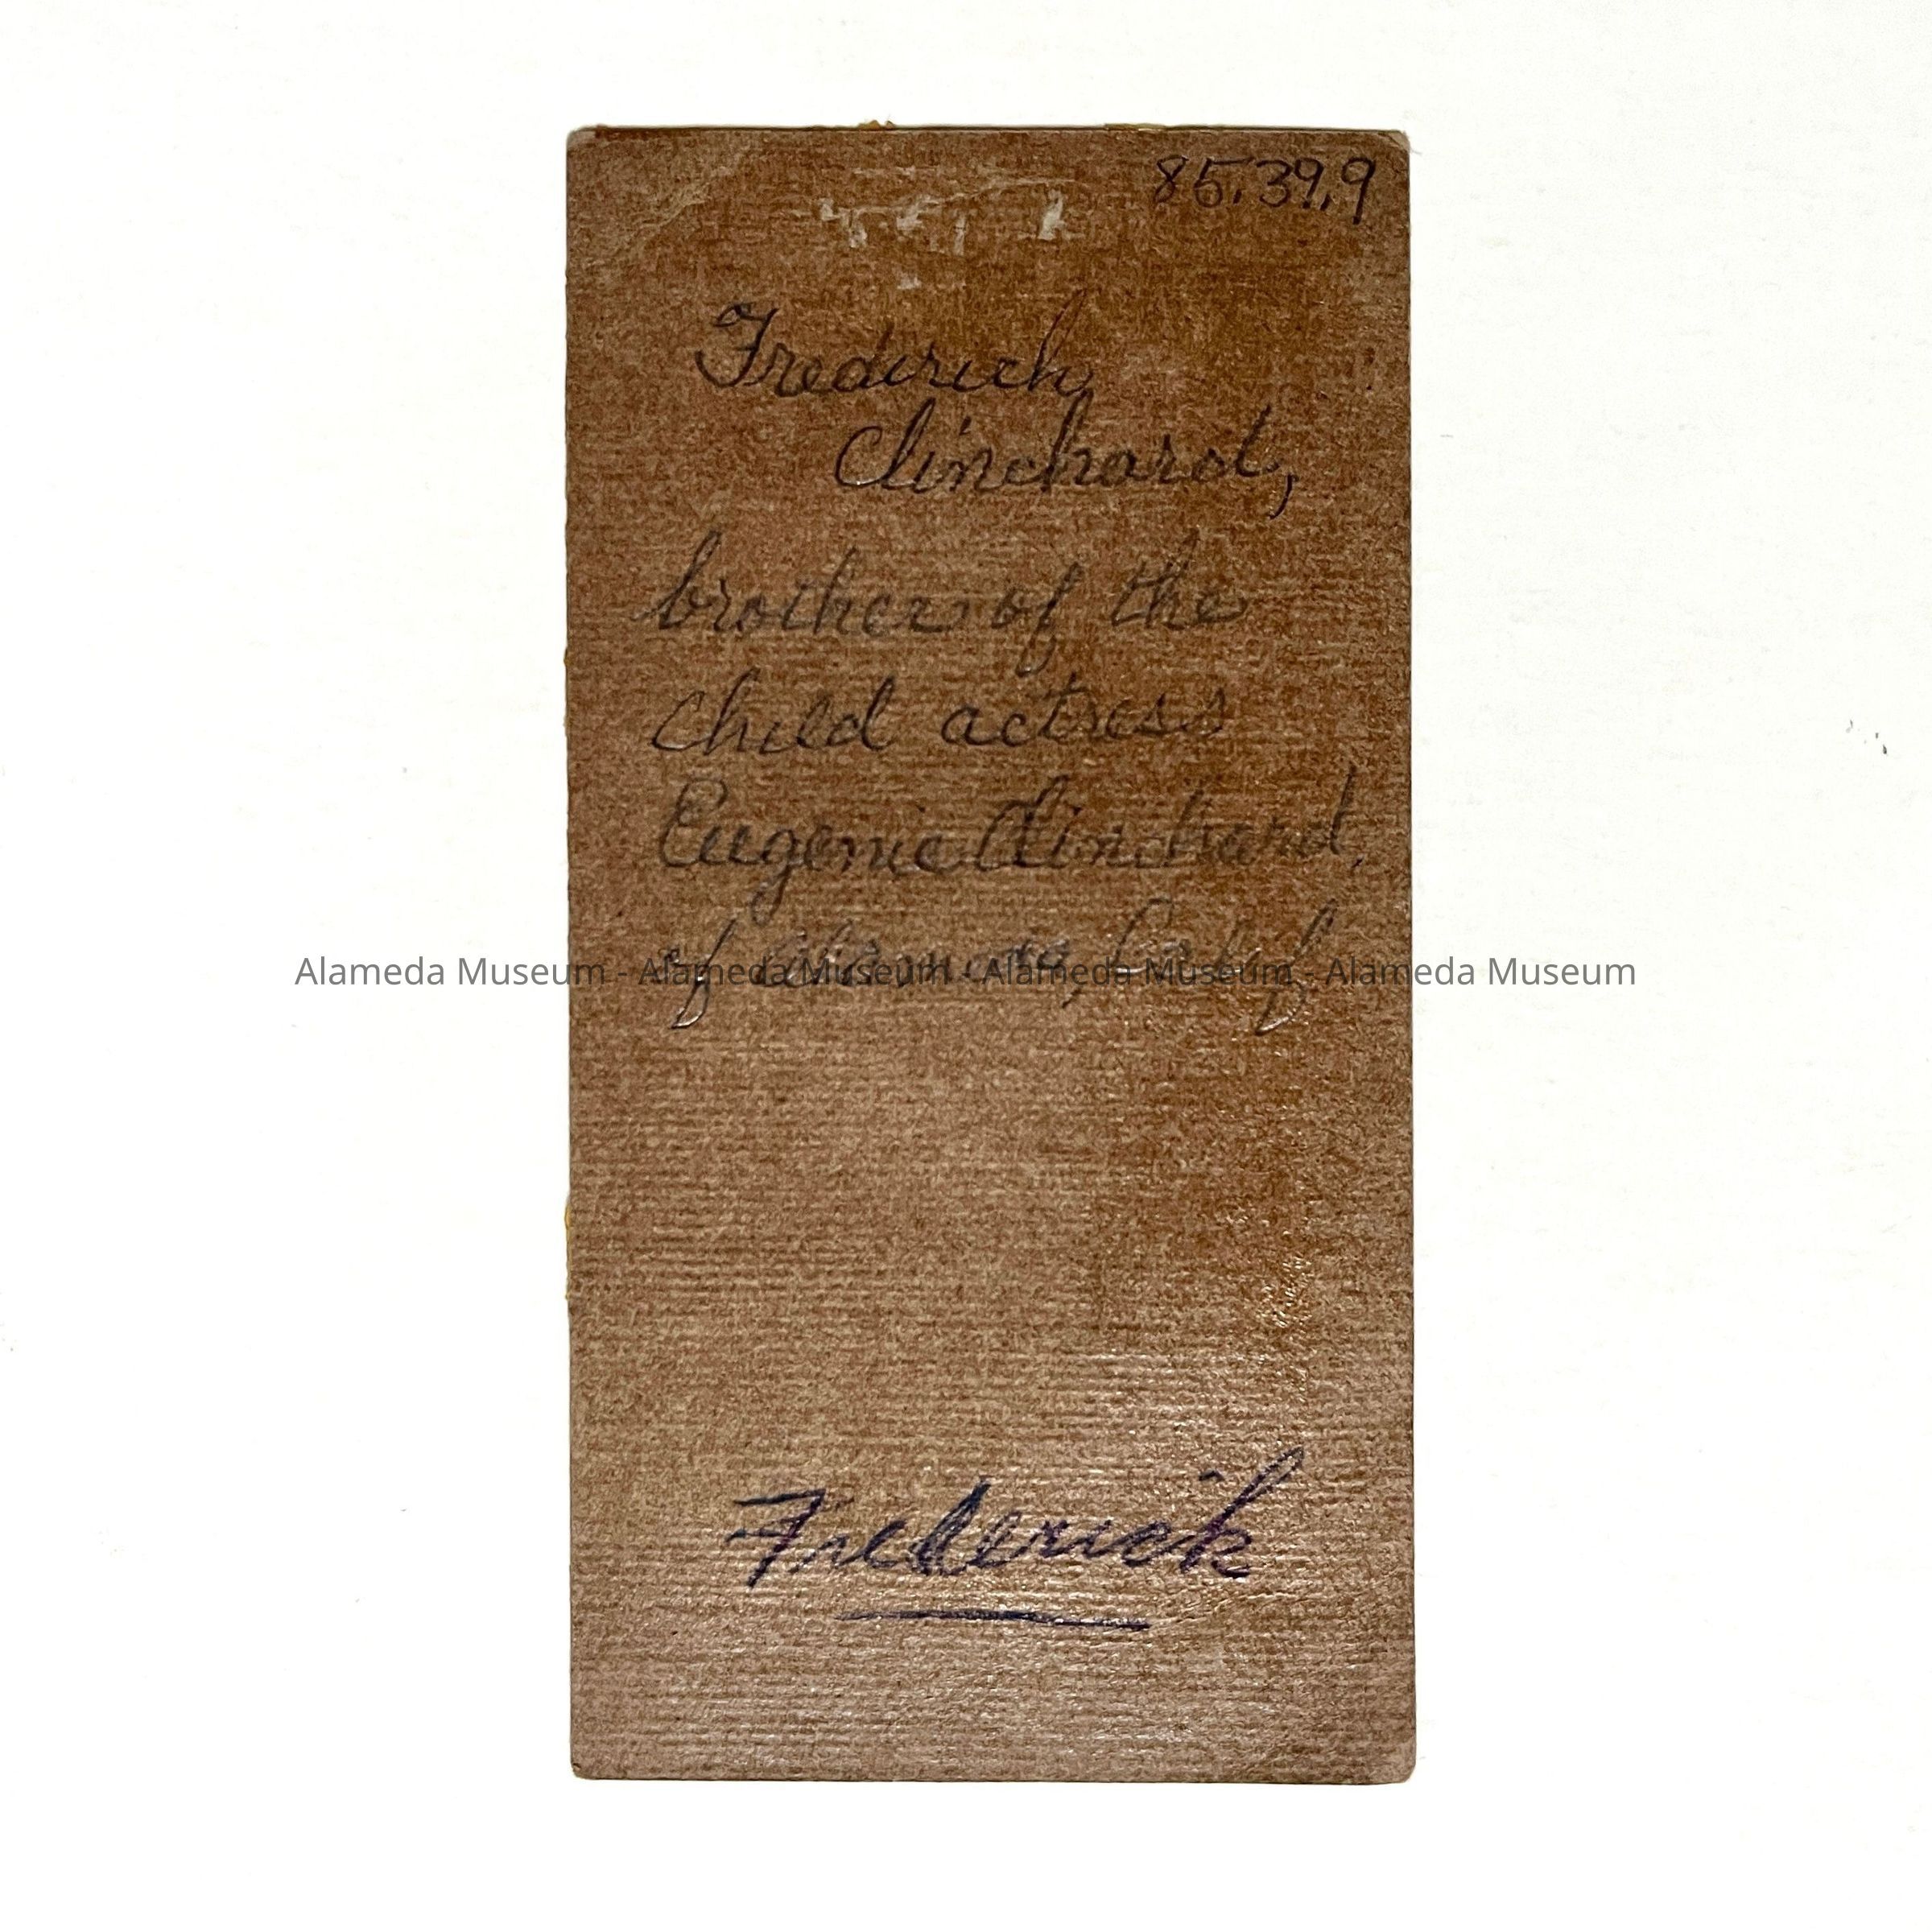 85.39.9
Frederich
Clinchard,
brother of the
child actress
Eugenie Clinchard,
of Alameda, Calif
Alameda Museum - Alameda Museum - Alameda Museum - Alameda Museum
Frederick